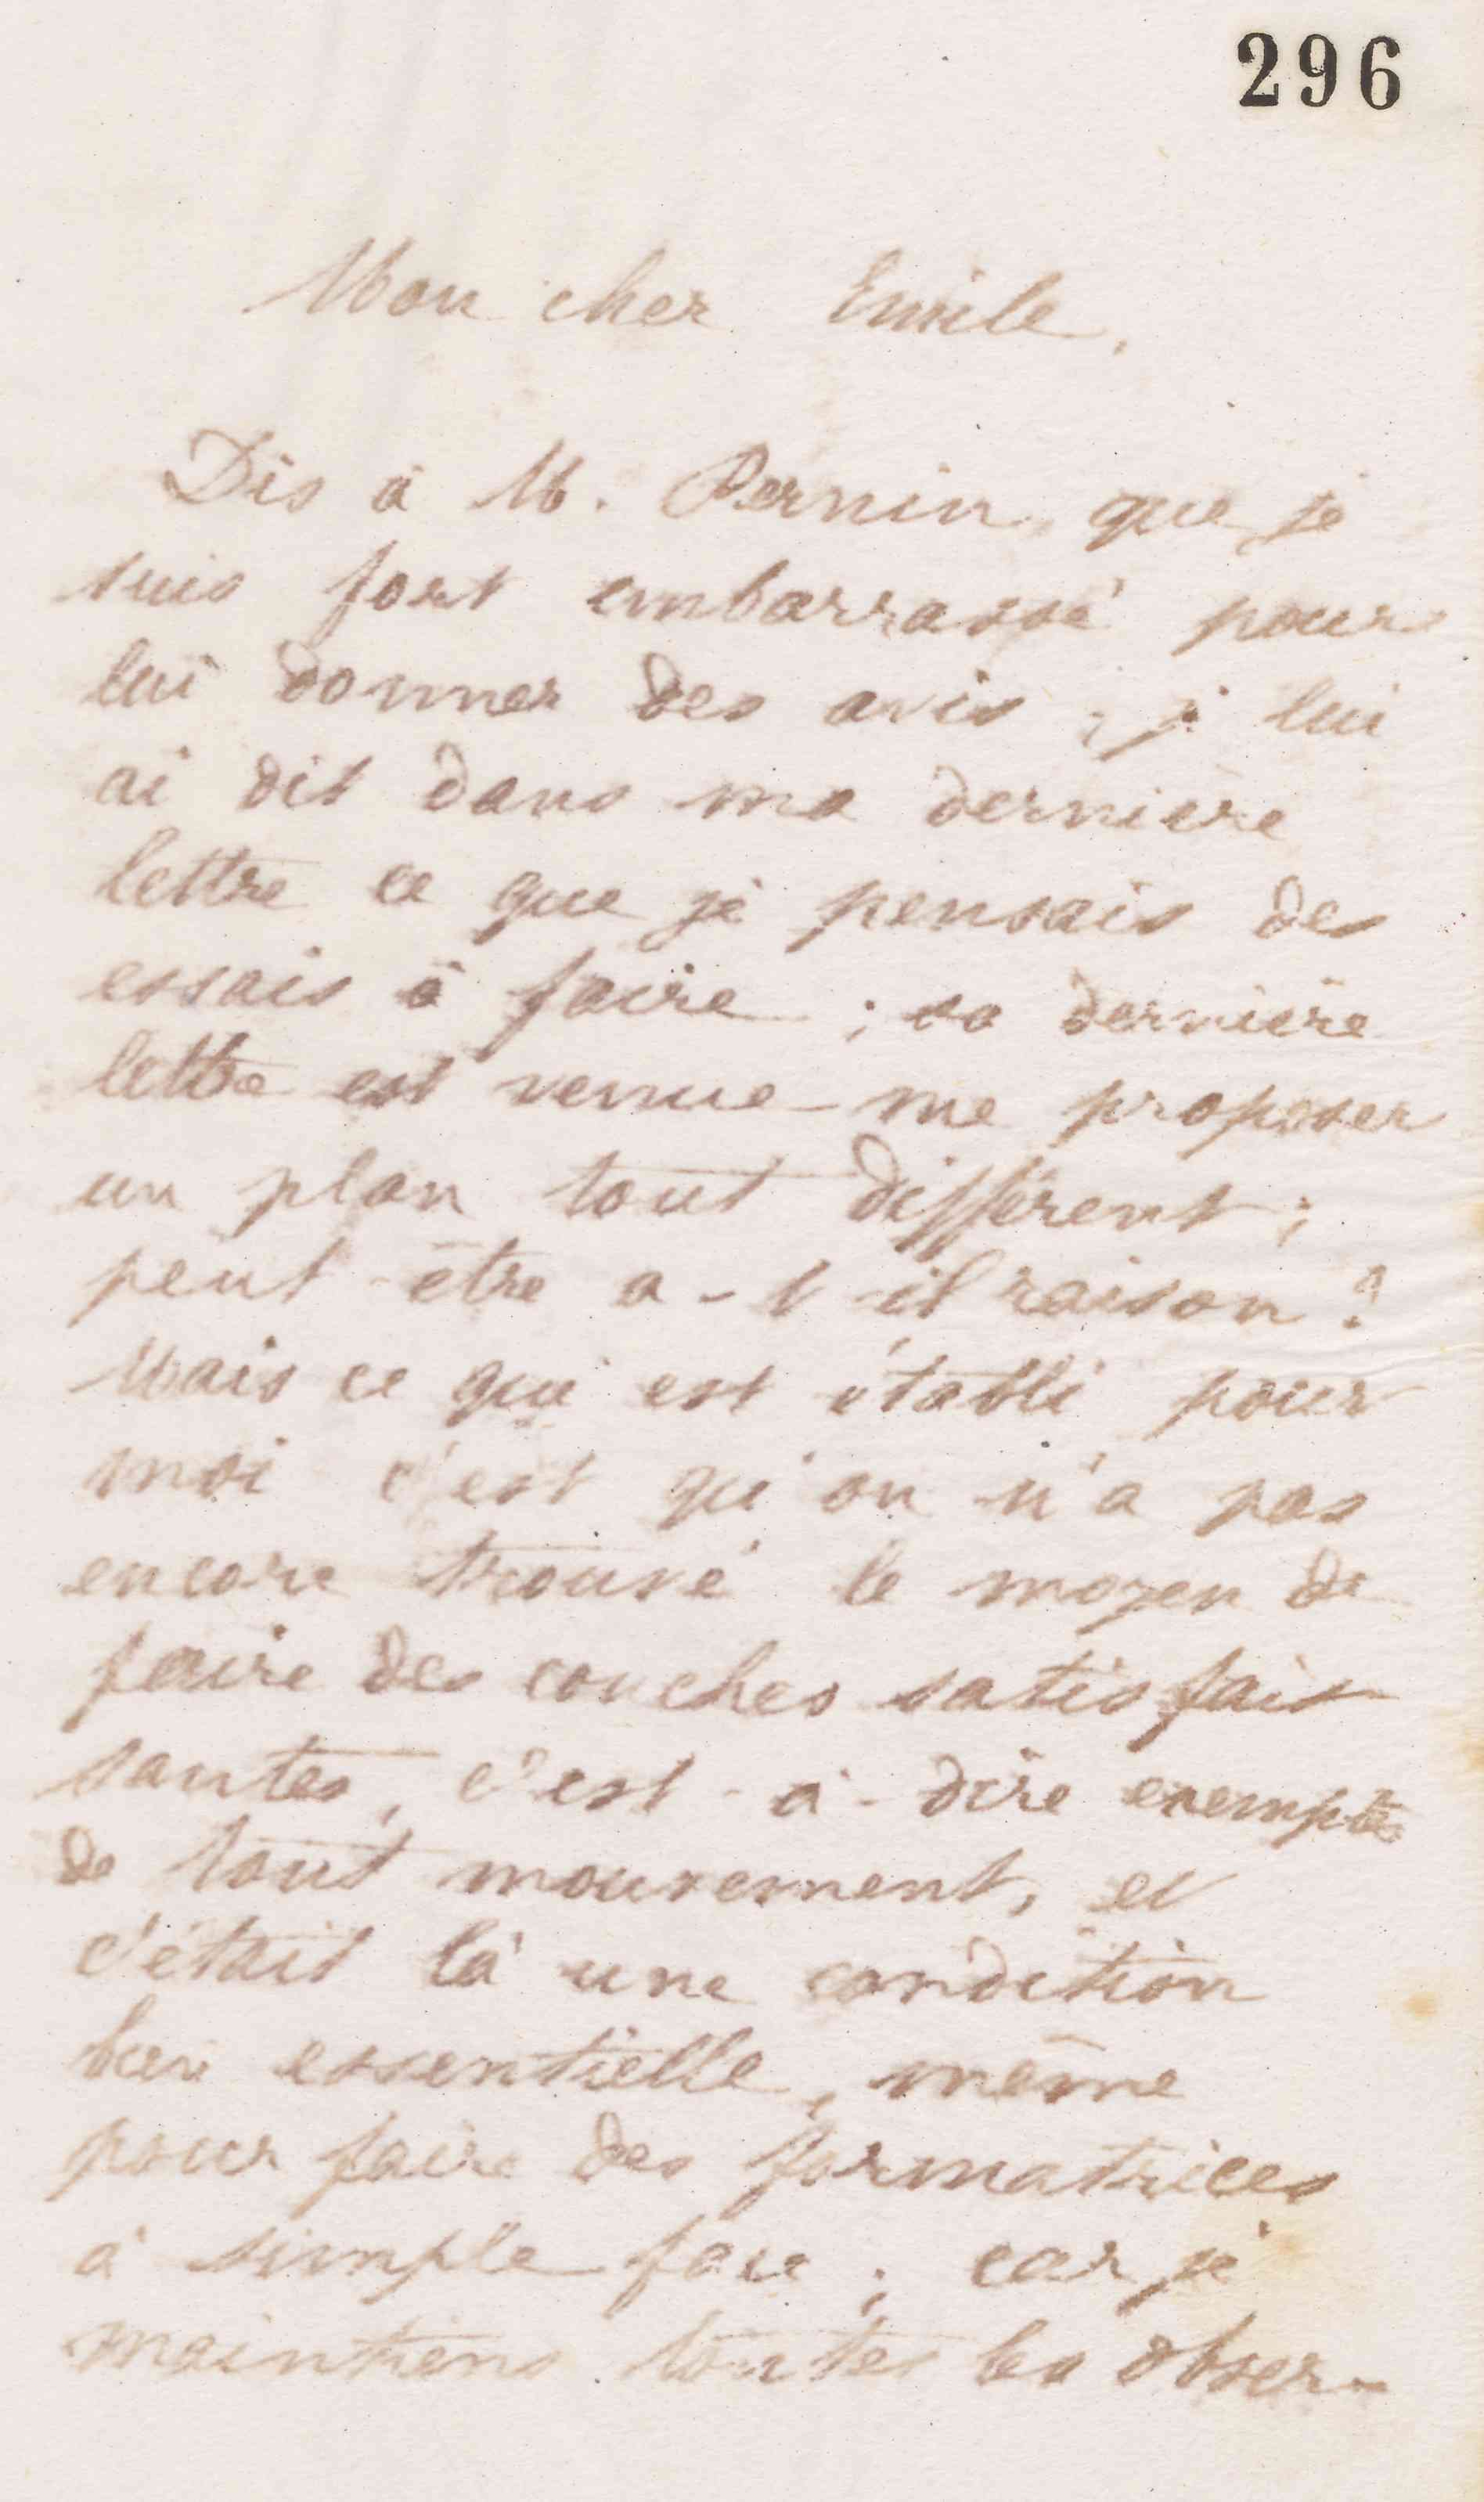 296
Mon cher Emile,
Dis à M. Pernin que je
suis fort embarrassé pour
lui donner des avis ; je lui
ai dit dans ma dernière
lettre ce que je pensais des
essais à faire ; sa dernière
lettre est venue me proposer
un plan tout différent ;
peut-être a-t-il raison ?
Mais ce qui est établi pour
moi c'est qu'on n'a pas
encore trouvé le moyen de
faire des couches satisfais
santes, c'est-à-dire exemptes
de tout mouvement, et
c'était là une condition
bien essentielle, même
pour faire des formatrices
à simple face ; car je
maintiens toutes les obser-